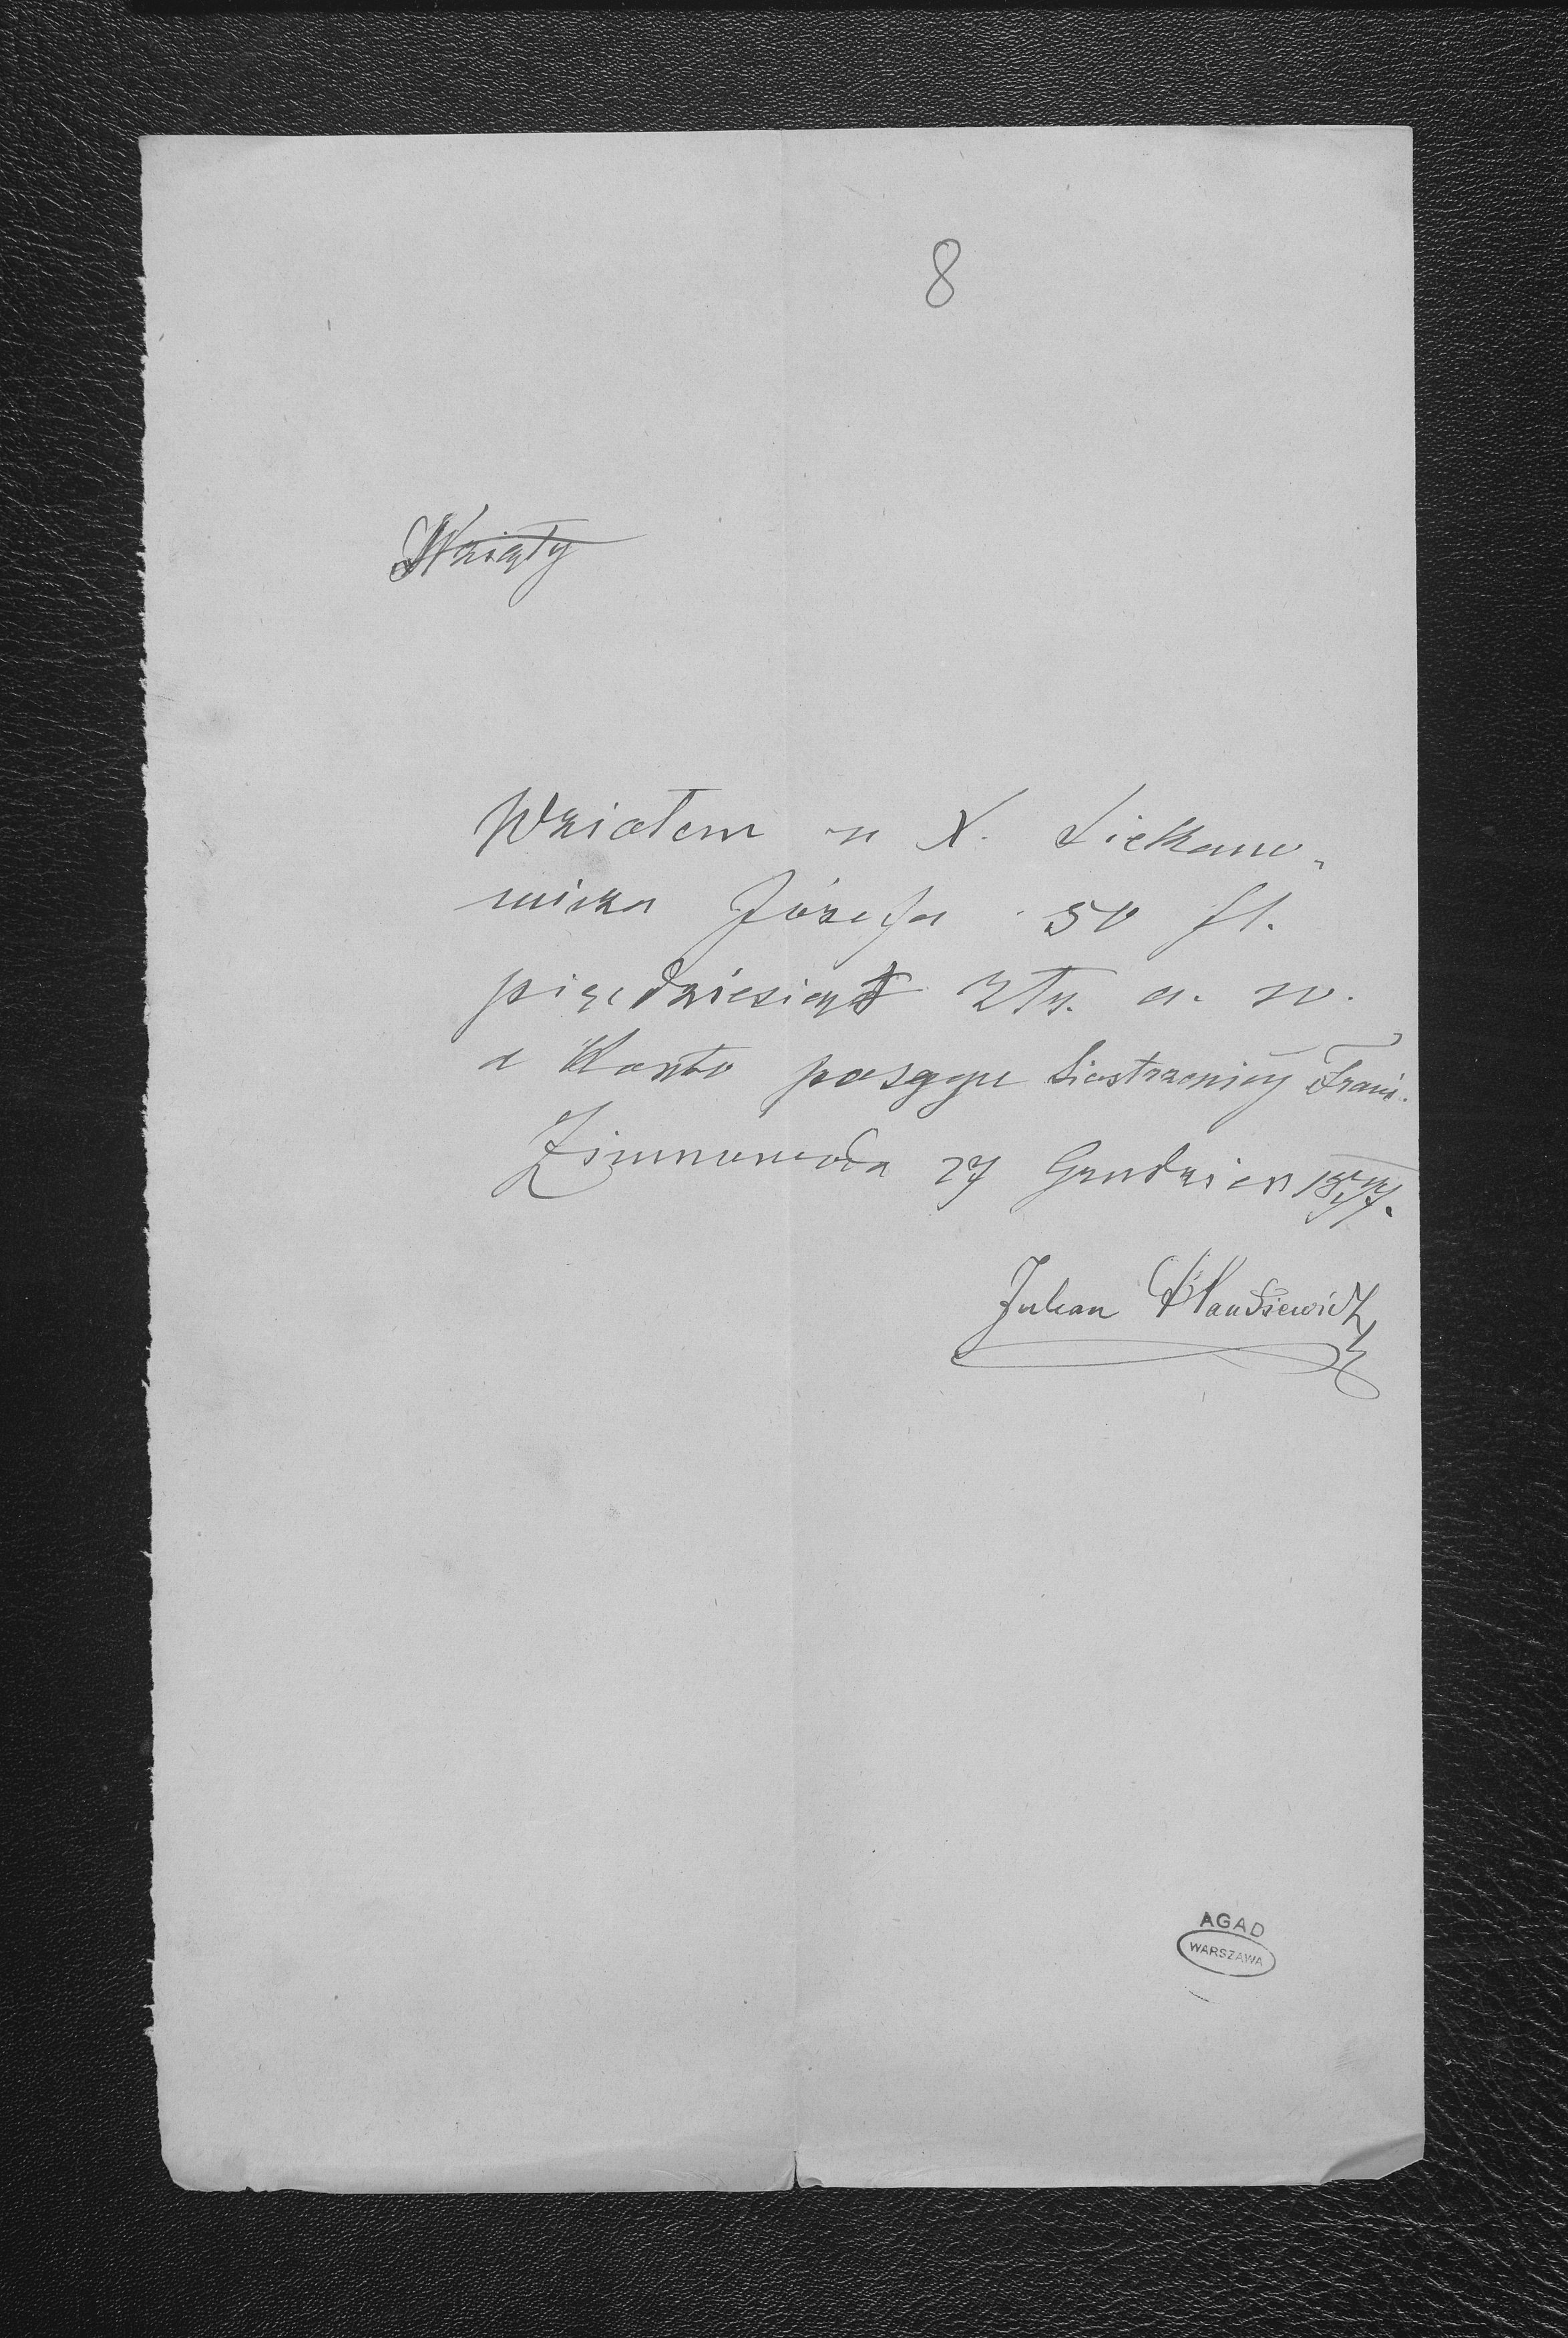 8
Wzięty
Wziołem u X. Siekano-
wicza Józefa 50 fl.
pięcdziesiąt Złr. a. w.
a Konto posagu Siestrzenicy Franc.
Zimnawoda 27 Grudzien 1877.
Julian
AGAD
WARSZAWA